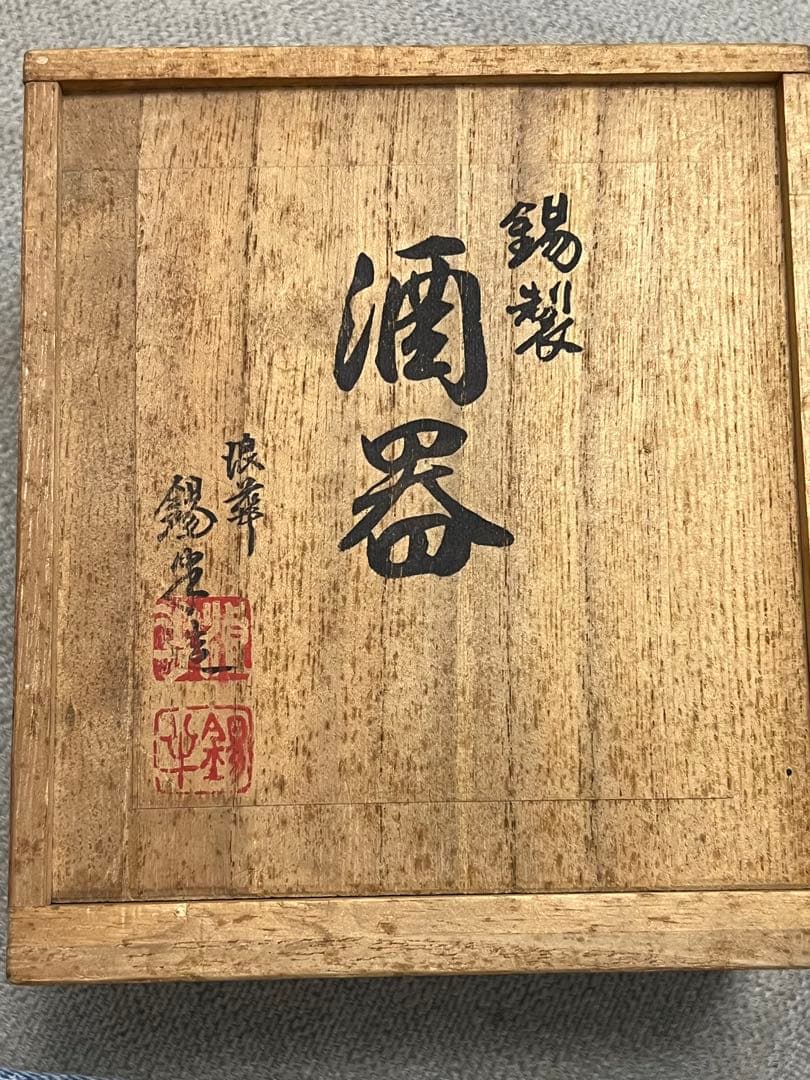 錫製
酒器
浪華
錫半造
錫半